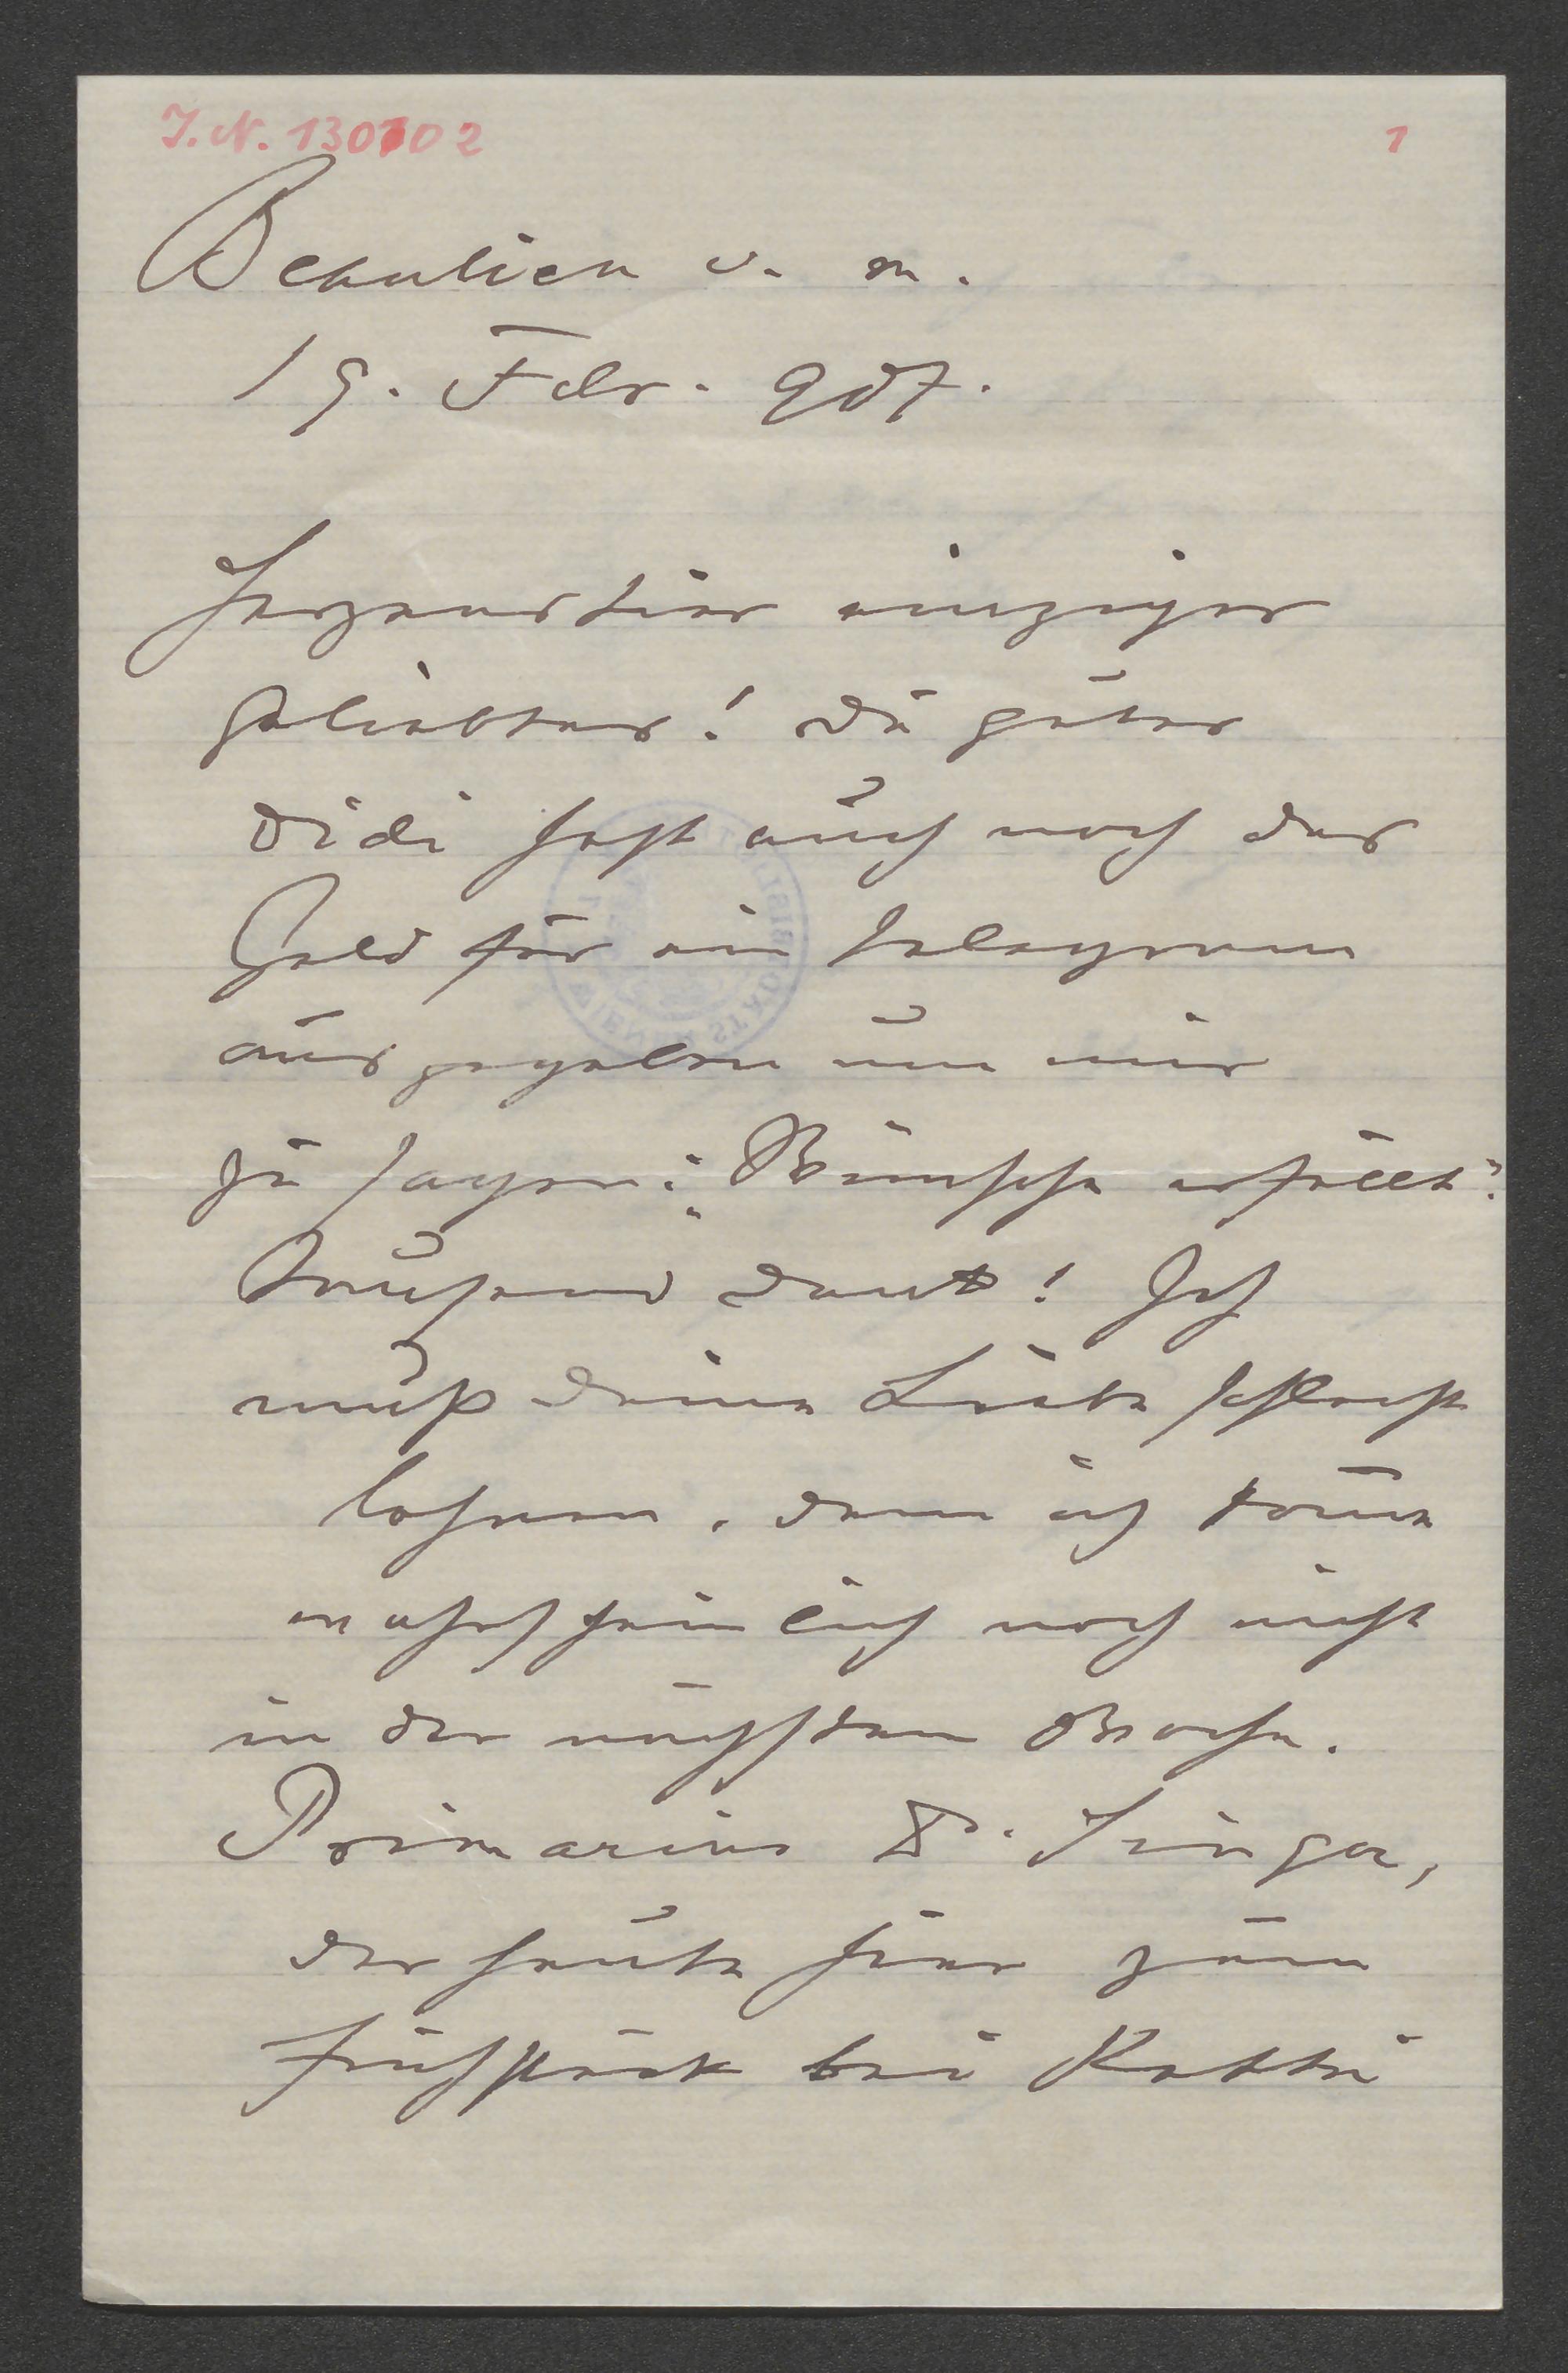 I. N. 130102
1
Beaulieu s. m.
19. Febr. 907.
Herzenstier einziger
Geliebter! Du guter
Didi hast auch noch das
Geld für ein Telegramm
ausgegeben um mir
zu sagen: Wünsche erfüllt".
Tausend Dank! Ich
muß Deine Liebe schlecht
lohnen, denn ich komme
wahrscheinlich noch nicht
in der nächsten Woche.
Primarius Dr. Singer,
der heute hier zum
Frühstück bei Kathi